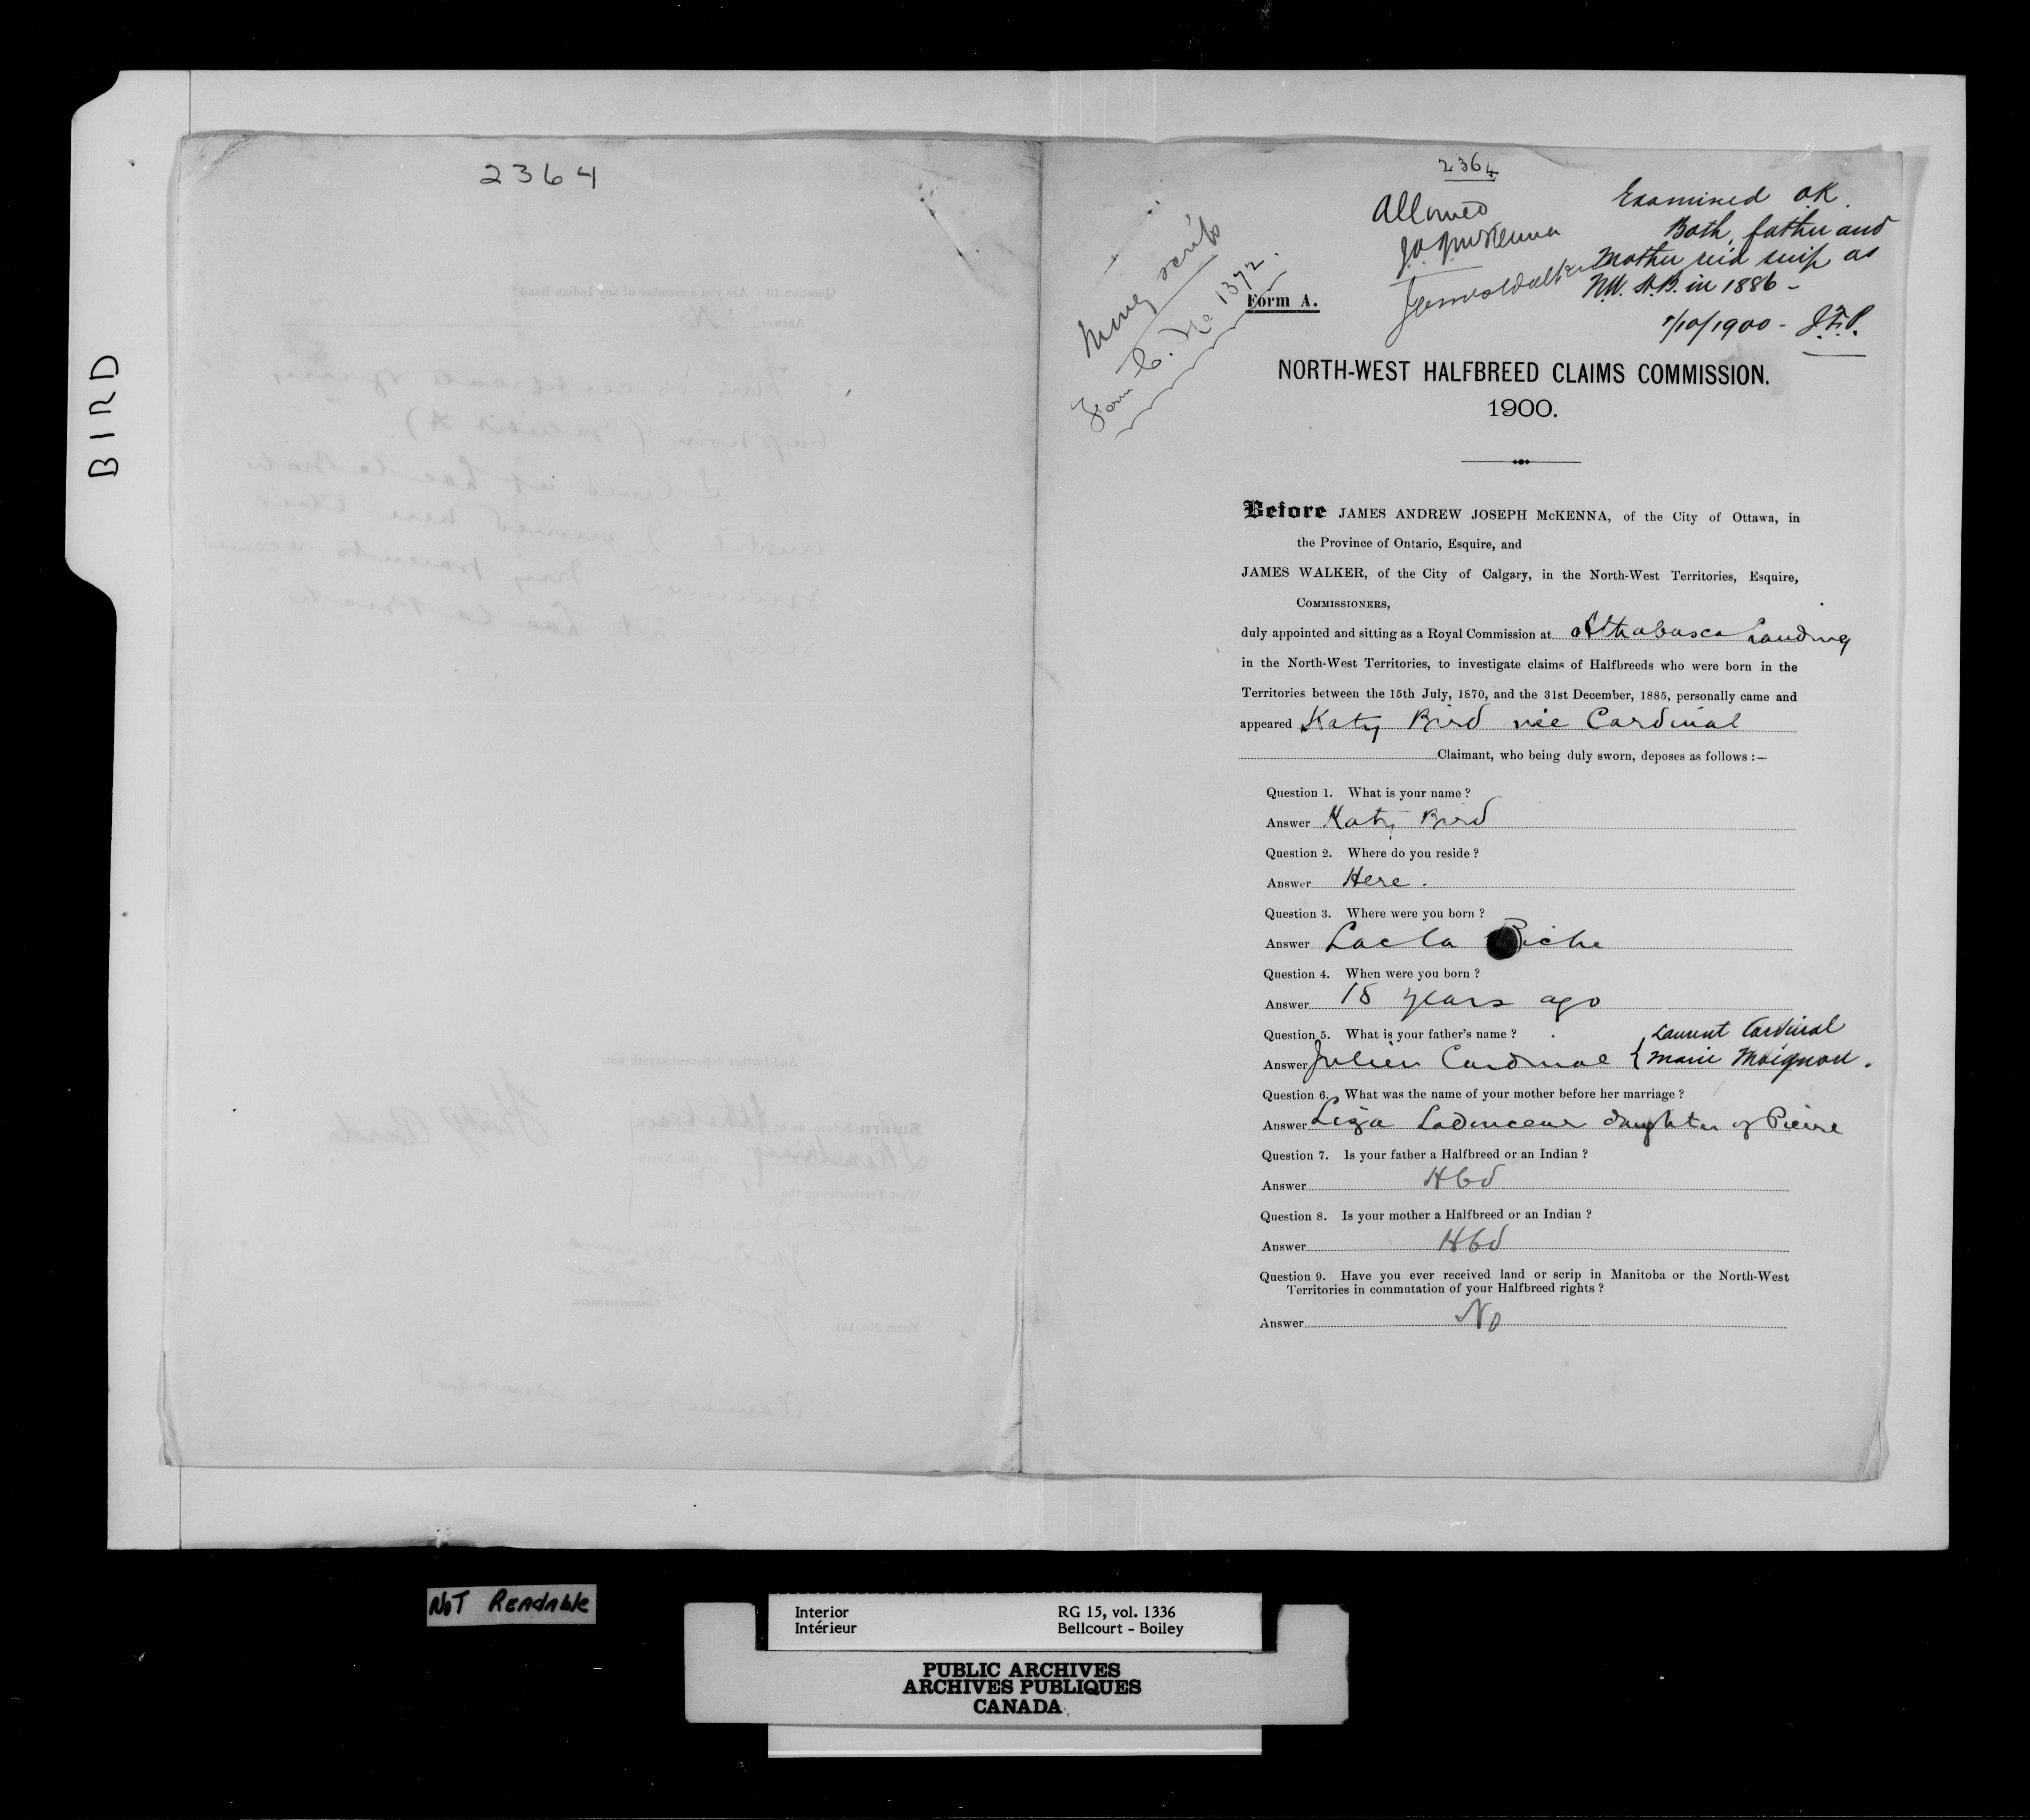 BIRD
2364
2364
Allowed
J.A. McKenna
James Walker
Examined OK.
Both father and
Mother rec'd scrip as
N.W. H.B. in 1886 -
1/10/1900 - J.F.P.
Money scrip
Form C. No. 1372.
Form A.
NORTH-WEST HALFBREED CLAIMS COMMISSION.
1900.
Before JAMES ANDREW JOSEPH McKENNA, of the City of Ottawa, in
the Province of Ontario, Esquire, and
JAMES WALKER, of the City of Calgary, in the North-West Territories, Esquire,
COMMISSIONERS,
duly appointed and sitting as a Royal Commission at Athabasca Landing
in the North-West Territories, to investigate claims of Halfbreeds who were born in the
Territories between the 15th July, 1870, and the 31st December, 1885, personally came and
appeared Katy Bird née Cardinal
Claimant, who being duly sworn, deposes as follows :—
Question 1. What is your name ?
Answer Katy Bird
Question 2. Where do you reside ?
Answer Here.
Question 3. Where were you born ?
Answer Lac la Biche
Question 4. When were you born ?
Answer 18 years ago
Question 5. What is your father's name ? Laurent Cardinal
Answer Julien Cardinal { Marie Moignon.
Question 6. What was the name of your mother before her marriage ?
Answer Liza Ladouceur daughter of Pierre
Question 7. Is your father a Halfbreed or an Indian ?
Answer Hbd
Question 8. Is your mother a Halfbreed or an Indian ?
Answer Hbd
Question 9. Have you ever received land or scrip in Manitoba or the North-West
Territories in commutation of your Halfbreed rights ?
Answer No
NOT READABLE
Interior RG 15, vol. 1336
Intérieur Bellcourt - Boiley
PUBLIC ARCHIVES
ARCHIVES PUBLIQUES
CANADA